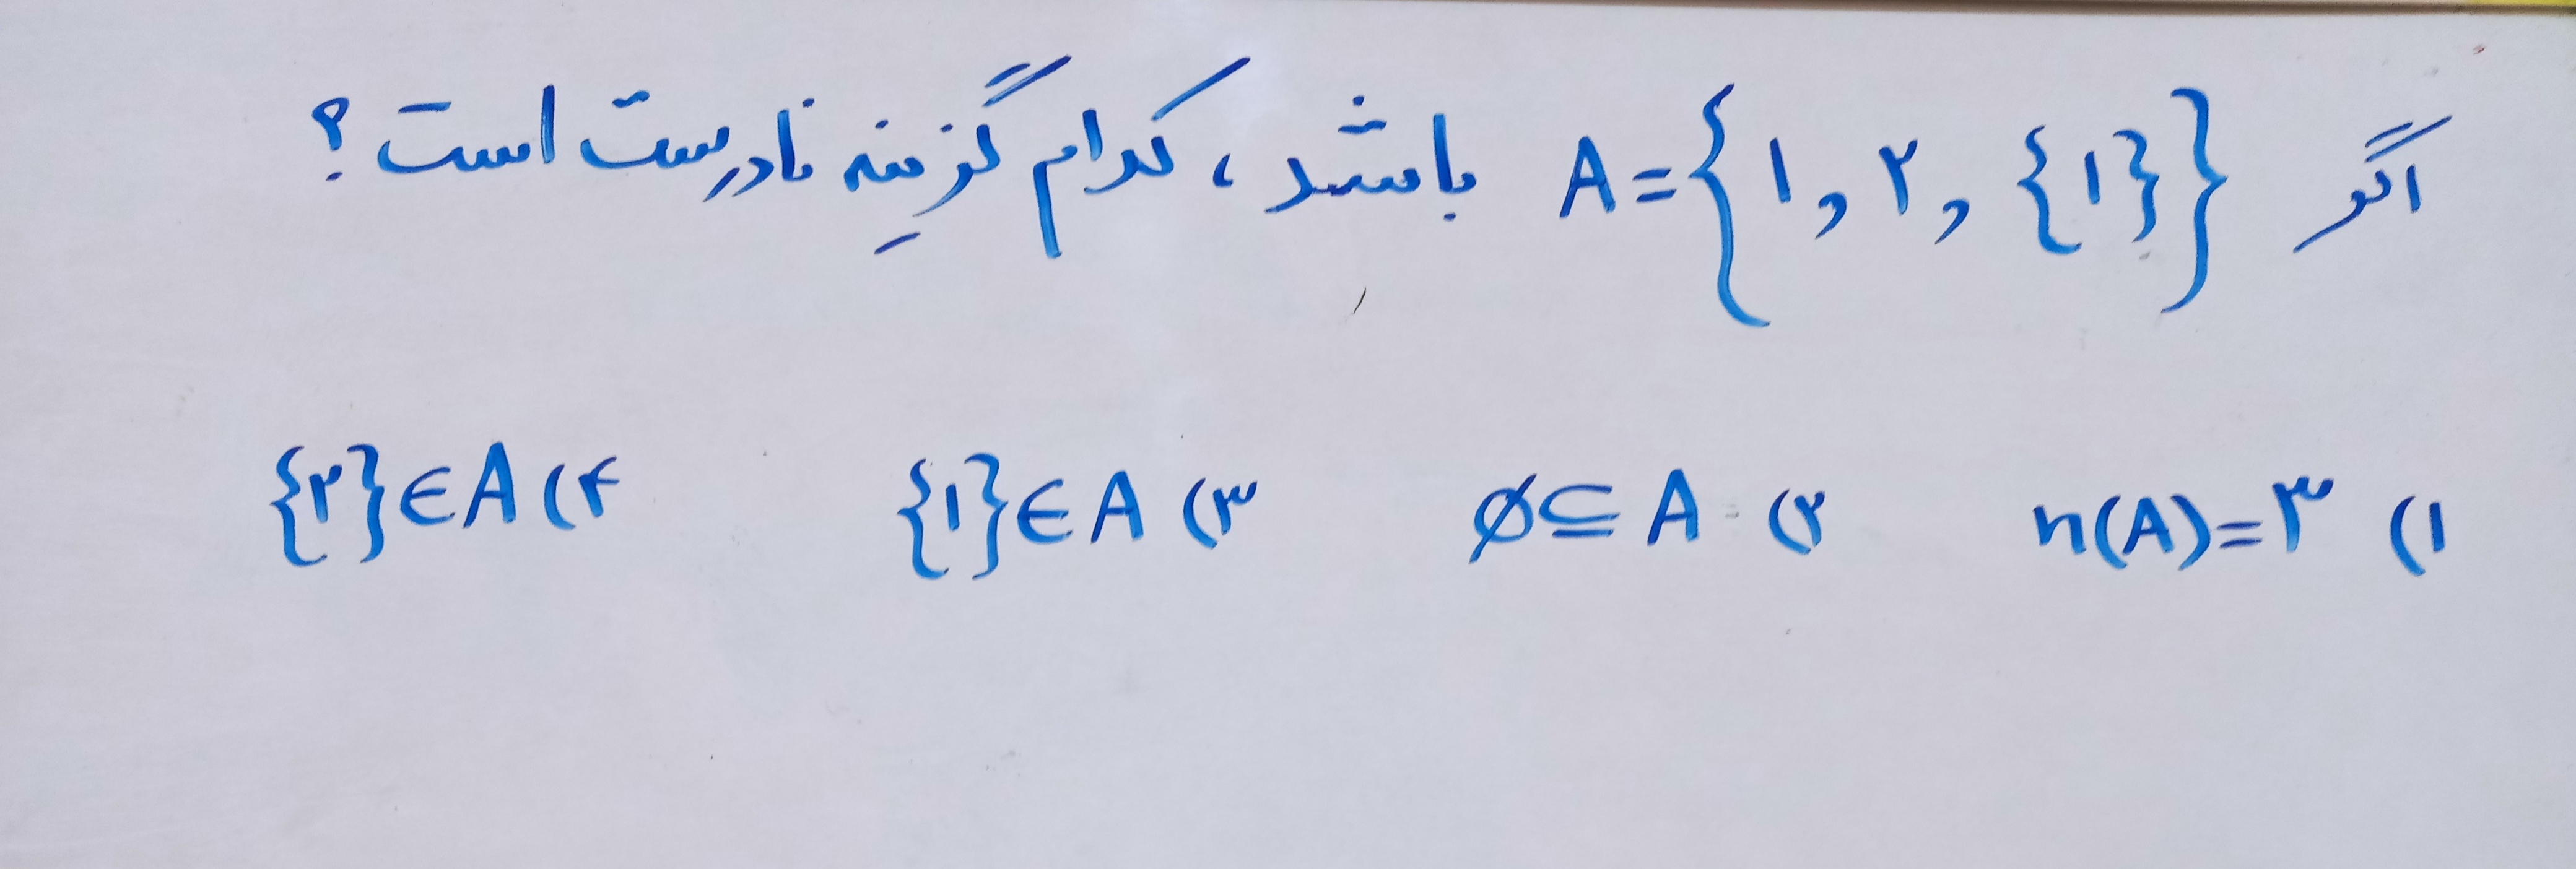 اگر A={۱, ۲, {۱}} باشد، کدام گزینهٔ نادرست است؟
۱) n(A)=۳ ۲) ∅⊆A ۳) {۱}∈A ۴) {۲}∈A